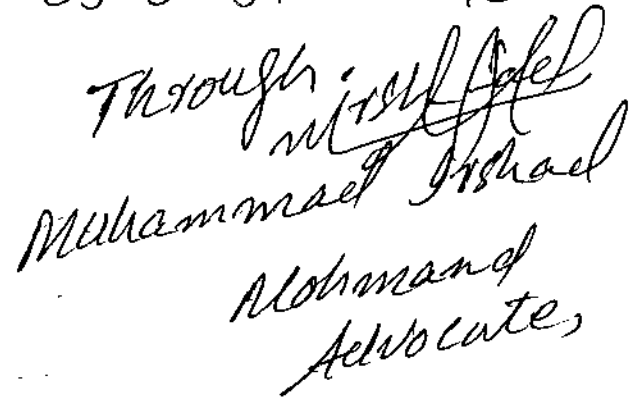 Through.
Muhammad Irshad
Mohmand
Advocate,